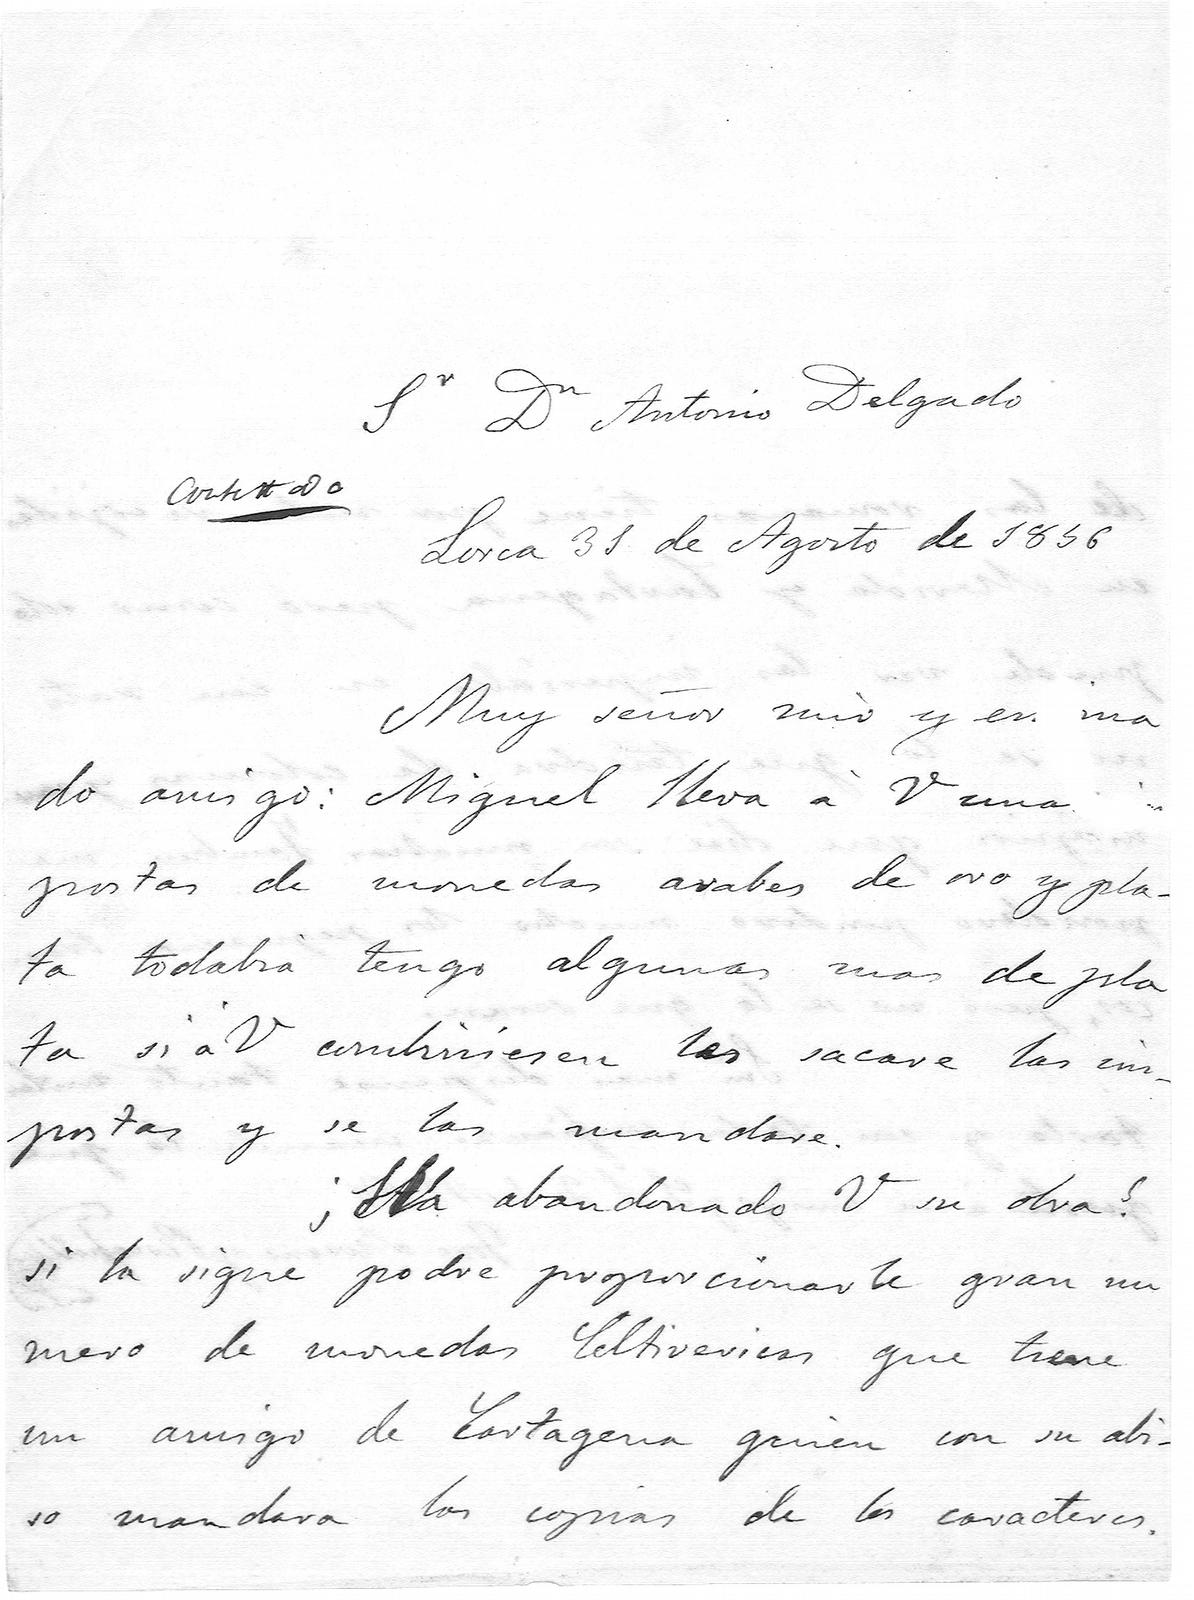 Sr Dn Antonio Delgado
Contestado
Lorca 31 de Agosto de 1856
Muy señor mio y es ma
do amigo: Miguel lleva à V una
postas de monedas arabes de oro y pla-
ta todabia tengo algunas mas de pla
ta si à V combiniesen les sacare las im-
postas y se las mandare.
¿Ha abandonado V su obra?
si la sigue podre proporcionarle gran nu
mero de monedas Celtivericas que tiene
un amigo de Cartagena quien con su abi-
so mandara las copias de los caracteres.